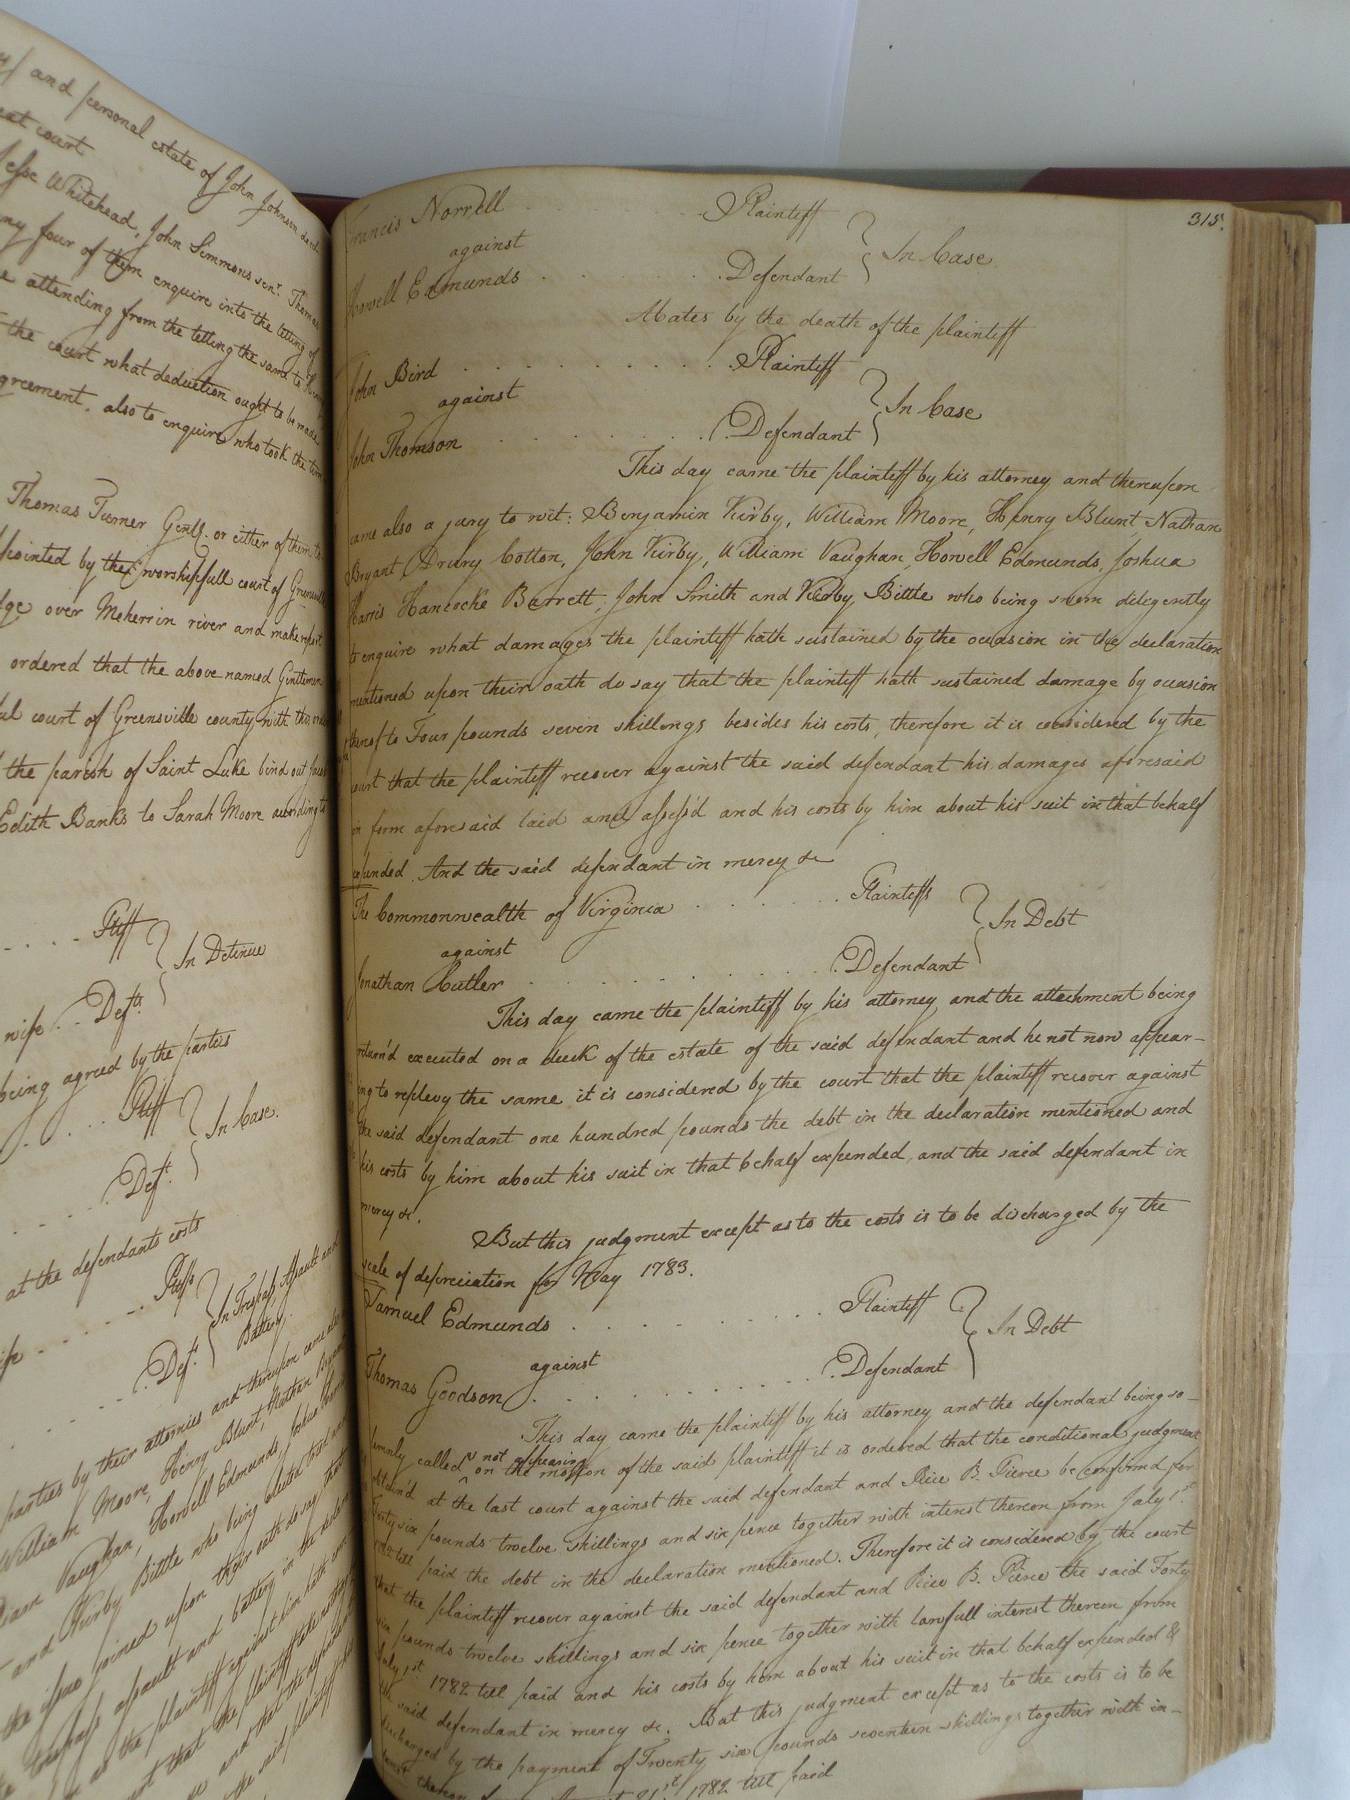 and personal estate of John Johnson decd
court
Jesse Whitehead, John Simmons senr. Thomas
any four of them enquire into the letting of
attending from the letting the same to
the court what deduction ought to be made
agreement. also to enquire who took the
Thomas Turner Gentl. or either of them to
appointed by the worshipfull court of Greensville
over Meherrin river and make report
ordered that the above named Gentlemen
court of Greensville county with this
the parish of Saint Luke bind out
Edith Banks to Sarah Moore according to
Pltff
In Detinue
wife . . Defts
being agreed by the parties
Pltff
In Case.
Deft.
at the defendants costs
Pltffs
In Trespass Assault and
Battery.
Deft.
parties by their attornies and thereupon came also
William Moore, Henry Blunt, Nathan Bryant
Vaughan, Howell Edmunds, Joshua Harris
and Kirby Bittle who being elected tried and
the issue joined upon their oath do say that
trespass assault and battery in the
as the plaintiff against him hath
that the plaintiff
and that the
the said plaintiff
315.
Francis Norrell . . . . . . Plaintiff
against
In Case
Howell Edmunds . . . . . . Defendant
Abates by the death of the plaintiff
John Bird . . . . . . . . . Plaintiff
against
In Case
John Thomson . . . . . . . Defendant
This day came the plaintiff by his attorney and thereupon
came also a jury to wit: Benjamin Kirby, William Moore, Henry Blunt, Nathan
Bryant, Drury Cotton, John Kirby, William Vaughan, Howell Edmunds, Joshua
Harris Hancocke Barrett, John Smith and Kirby Bittle who being sworn diligently
to enquire what damages the plaintiff hath sustained by the occasion in the declaration
mentioned upon their oath do say that the plaintiff hath sustained damage by occasion
thereof to Four pounds seven shillings besides his costs, therefore it is considered by the
court that the plaintiff recover against the said defendant his damages aforesaid
in form aforesaid laid and assess'd and his costs by him about his suit in that behalf
expended. And the said defendant in mercy &c
The Commonwealth of Virginia . . . . . . Plaintiffs
against
In Debt
Jonathan Cutler . . . . . . . Defendant
This day came the plaintiff by his attorney and the attachment being
return'd executed on a desk of the estate of the said defendant and he not now appear-
ing to replevy the same it is considered by the court that the plaintiff recover against
the said defendant one hundred pounds the debt in the declaration mentioned and
his costs by him about his suit in that behalf expended, and the said defendant in
mercy &c.
But this judgment except as to the costs is to be discharged by the
scale of depreciation for May 1783.
Samuel Edmunds . . . . . . . Plaintiff
against
In Debt
Thomas Goodson . . . . . . . Defendant
This day came the plaintiff by his attorney and the defendant being so-
lemnly called not appearing on the motion of the said plaintiff it is ordered that the conditional judgment
obtain'd at the last court against the said defendant and Rice B. Pierce be confirmed for
Forty six pounds twelve shillings and six pence together with interest thereon from July 1st.
1782 till paid the debt in the declaration mentioned. Therefore it is considered by the court
that the plaintiff recover against the said defendant and Rice B. Pierce the said Forty
six pounds twelve shillings and six pence together with lawfull interest thereon from
July 1st 1782 till paid and his costs by him about his suit in that behalf expended &
the said defendant in mercy &c. But this judgment except as to the costs is to be
discharged by the payment of Twenty six pounds seventeen shillings together with in-
terest thereon from 1782 till paid